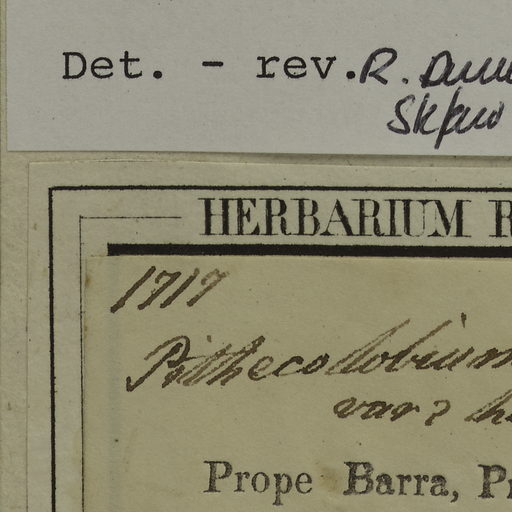 Det. - rev. R.
HERBARIUM
1717
Pithecolobium
var?
Prope Barra,